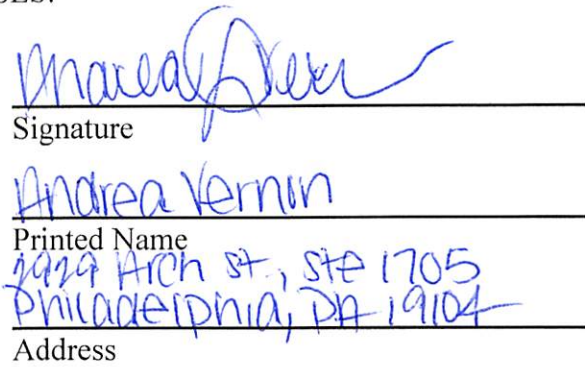 Signature
Andrea Vernin
Printed Name
2929 Arch St., Ste 1705
Philadelphia, PA 19104
Address